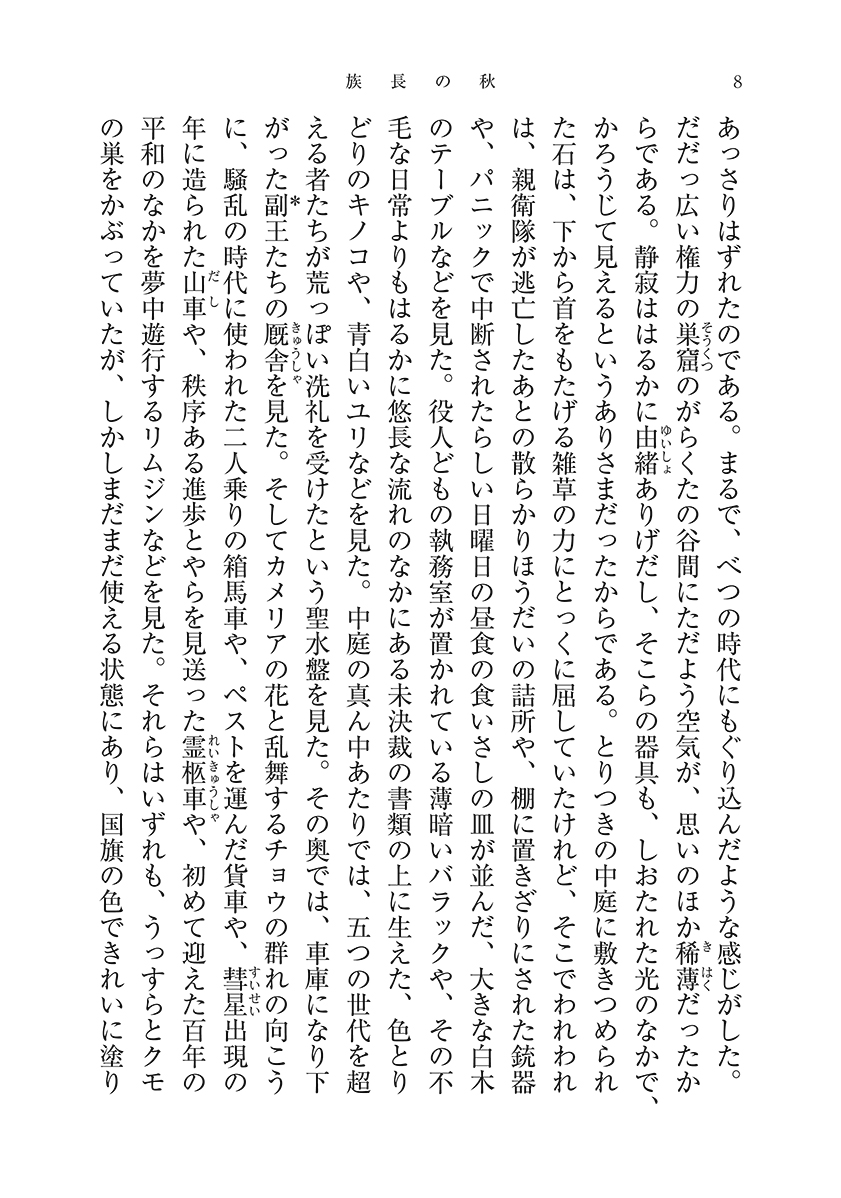 族長の秋
8
あっさりはずれたのである。まるで、べつの時代にもぐり込んだような感じがした。
だだっ広い権力の巣窟のがらくたの谷間にただよう空気が、思いのほか稀薄だったか
らである。静寂ははるかに由緒ありげだし、そこらの器具も、しおたれた光のなかで、
かろうじて見えるというありさまだったからである。とりつきの中庭に敷きつめられ
た石は、下から首をもたげる雑草の力にとっくに屈していたけれど、そこでわれわれ
は、親衛隊が逃亡したあとの散らかりほうだいの詰所や、棚に置きざりにされた銃器
や、パニックで中断されたらしい日曜日の昼食の食いさしの皿が並んだ、大きな白木
のテーブルなどを見た。役人どもの執務室が置かれている薄暗いバラックや、その不
毛な日常よりもはるかに悠長な流れのなかにある未決裁の書類の上に生えた、色とり
どりのキノコや、青白いユリなどを見た。中庭の真ん中あたりでは、五つの世代を超
える者たちが荒っぽい洗礼を受けたという聖水盤を見た。その奥では、車庫になり下
がった副*王たちの厩舎を見た。そしてカメリアの花と乱舞するチョウの群れの向こう
に、騒乱の時代に使われた二人乗りの箱馬車や、ペストを運んだ貨車や、彗星出現の
年に造られた山車や、秩序ある進歩とやらを見送った霊柩車や、初めて迎えた百年の
平和のなかを夢中遊行するリムジンなどを見た。それらはいずれも、うっすらとクモ
の巣をかぶっていたが、しかしまだまだ使える状態にあり、国旗の色できれいに塗り